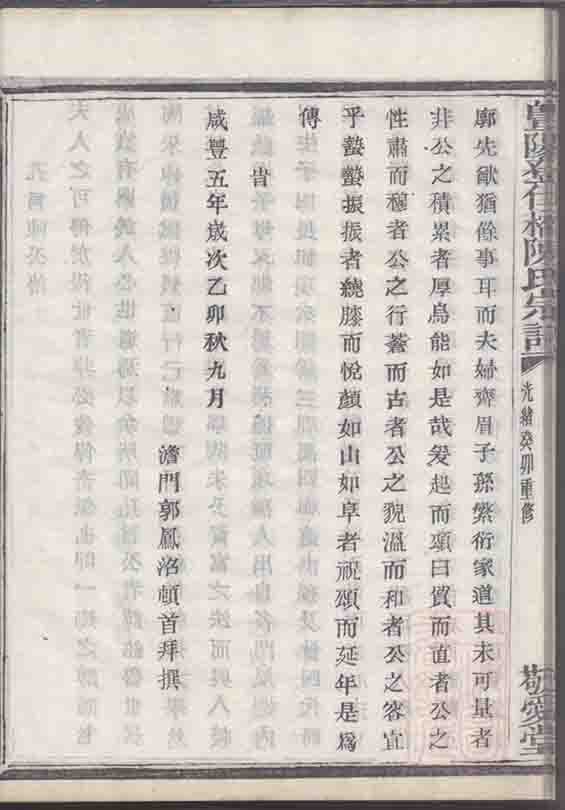 廓先猷猶餘事耳而夫婦齊眉子孫繁衍家道其未可量者
非公之積累者厚烏能如是哉爰起而頌曰質而直者公之
性肅而穆者公之行蒼而古者公之貌溫而和者公之容宜
乎蟄蟄振振者繞膝而悅顏如山如阜者視頌而延年是爲
傳
旹
咸豐五年歲次乙卯秋九月
澹門郭鳳沼頓首拜撰
陳氏宗譜
光緒癸卯重修
敬愛堂